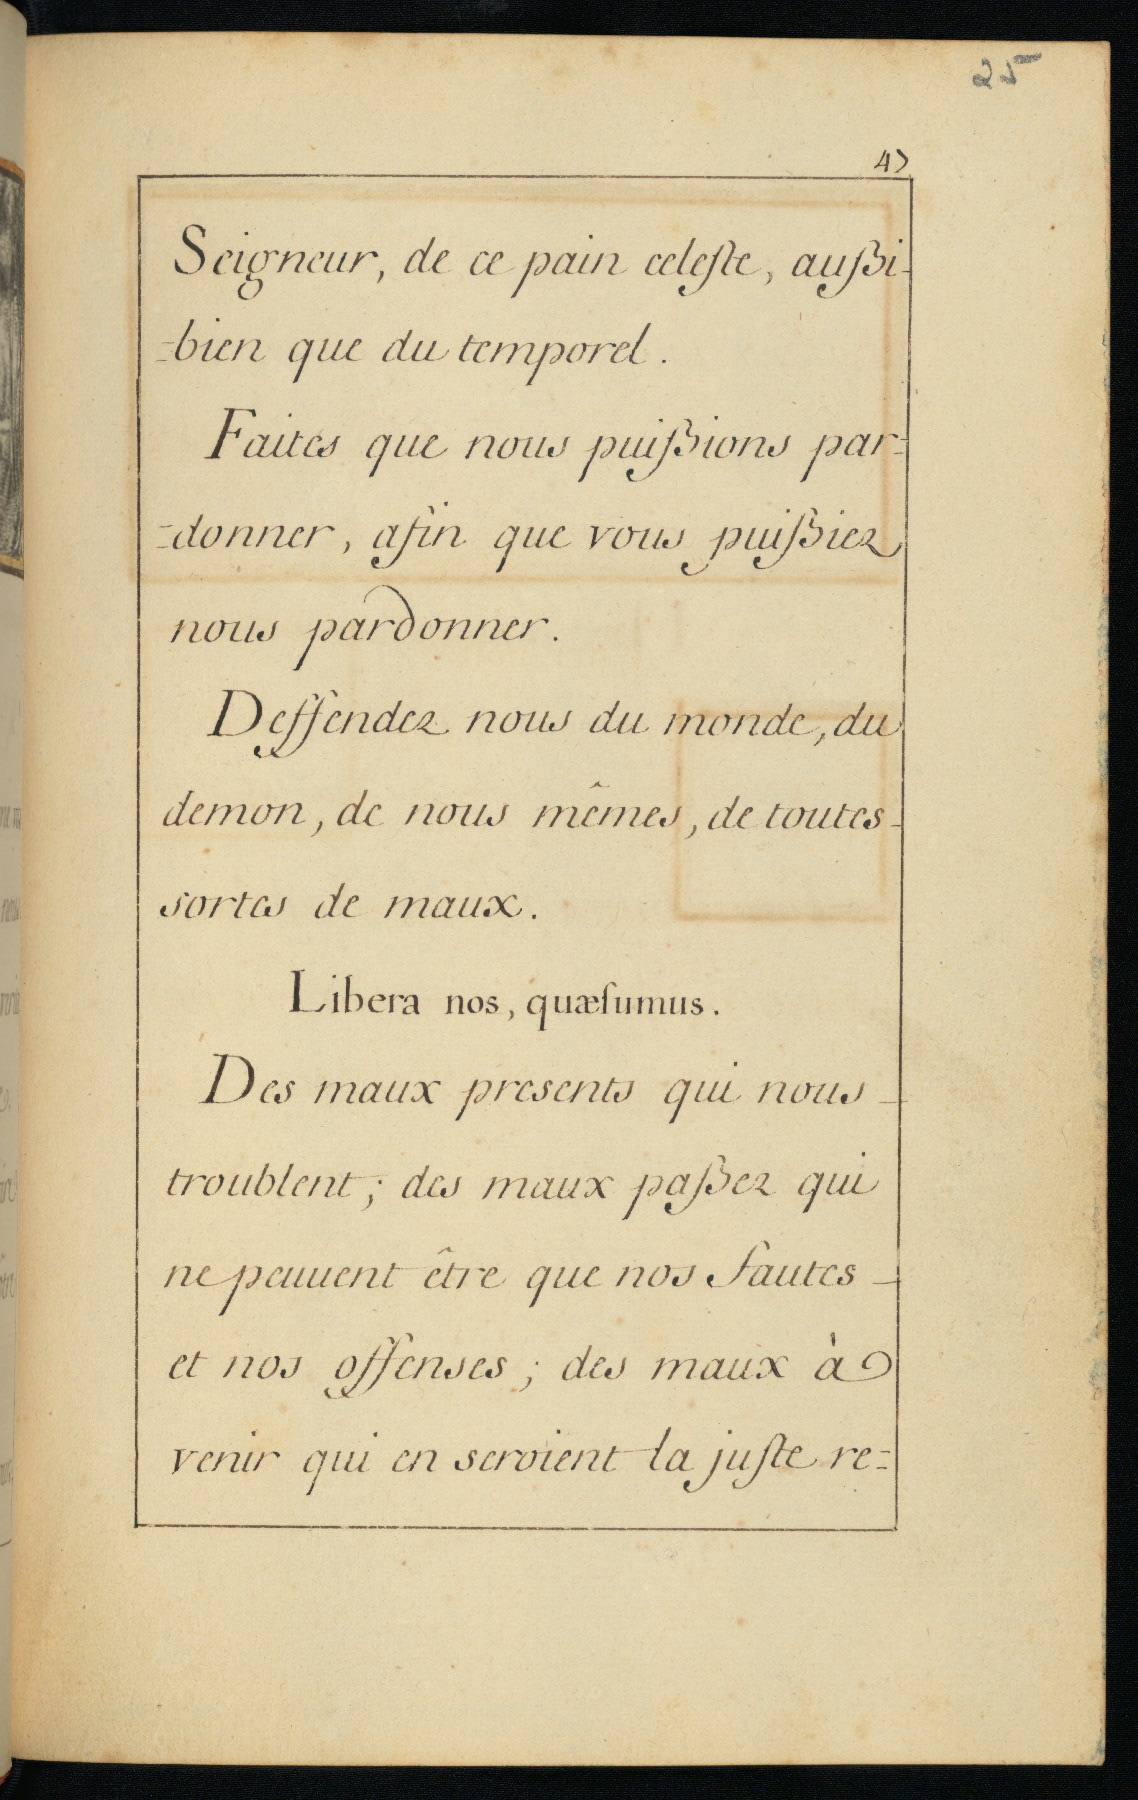 25
47
Seigneur, de ce pain celeste, außi-
=bien que du temporel.
Faites que nous puißions par=
=donner, afin que vous puißiez
nous pardonner.
Deffendez nous du monde, du
demon, de nous mêmes, de toutes-
sortes de maux.
Libera nos, quæſumus.
Des maux presents qui nous-
troublent; des maux paßez qui
ne peuuent être que nos fautes-
et nos offenses; des maux à
venir qui en seroient la juste re=